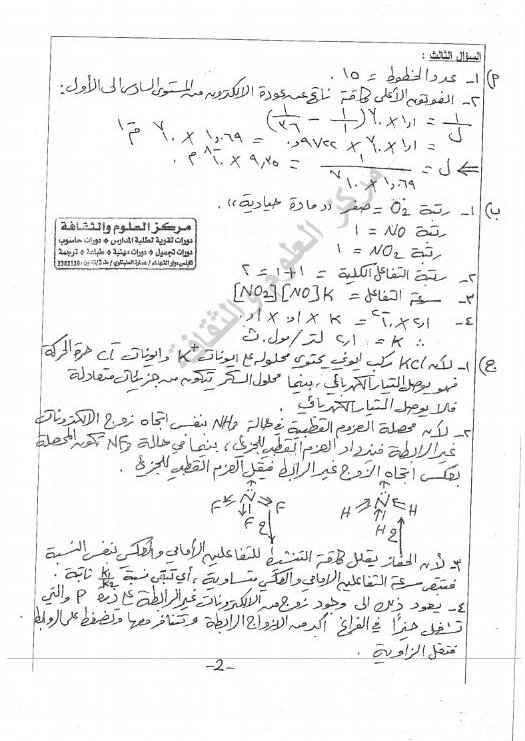 السؤال الثالث :
أ) ١- عدد الخطوط = ١٥ .
٢- الفوتون الأعلى طاقة ناتج عن عودة الالكترون من المستوى السادس الى الأول :
١/ل = ١,١ × ١٠^٧ (١/١ - ١/٣٦)
= ١,١ × ١٠^٧ × ٠,٩٧٢٢ = ١,٠٦٩ × ١٠^٧ م^-١
⇐ ل = ١/(١,٠٦٩ × ١٠^٧) = ٩,٣٥ × ١٠^-٨ م .
مركز العلوم والثقافة
دورات تقوية لطلبة المدارس • دورات حاسوب
دورات تجميل • دورات مهنية • طباعة • ترجمة
ب) ١- رتبة O₂ = صفر "مادة حيادية" .
رتبة NO = ١
رتبة NO₂ = ١
٢- رتبة التفاعل الكلية = ١+١ = ٢
٣- سرعة التفاعل = K[NO][NO₂]
∴ K = لتر/مول.ث
ج) ١- لأن KCl مركب أيوني يحتوي محلوله على أيونات K⁺ وأيونات حرة الحركة
فهو يوصل التيار الكهربائي ، بينما محلول السكر يتكون من جزيئات متعادلة
فلا يوصل التيار الكهربائي .
٢- لأن محصلة العزوم القطبية في حالة NH₃ بنفس اتجاه زوج الالكترونات
غير الرابطة فيزداد العزم القطبي للجزيء ، بينما في حالة NF₃ تكون المحصلة
بعكس اتجاه الزوج غير الرابط فيقل العزم القطبي للجزيء .
N N
F F H H
F H
٣- لأن الحفاز يقلل طاقة التنشيط للتفاعلين الأمامي والعكسي بنفس النسبة
فتبقى سرعة التفاعلين الأمامي والعكسي متساوية ، أي تبقى نسبة K₁/K₂ ثابتة .
٤- يعود ذلك الى وجود زوج من الالكترونات غير الرابطة على ذرة P والتي
تشغل حيزاً في الفراغ أكبر من الأزواج الرابطة وتتنافر معها وتضغط على الروابط
فتقل الزاوية .
-2-
مركز العلوم والثقافة